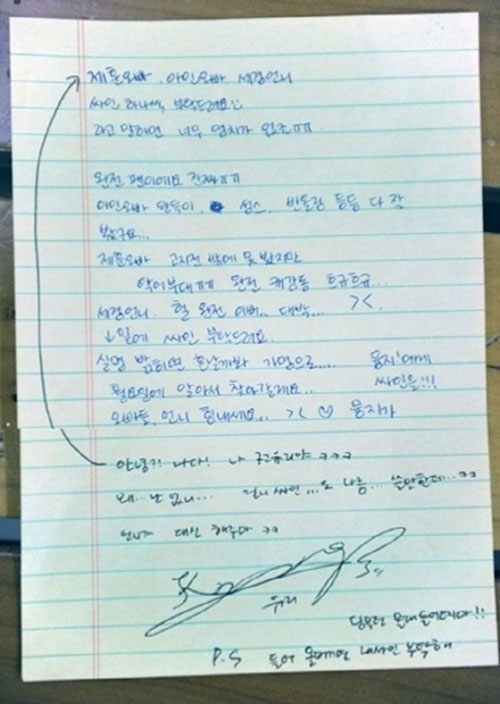 제훈오빠, 아인오빠 세경언니
싸인 하나씩 부탁드려요
라고 말하면 너무 염치가 없죠ㅠㅠ
완전 팬이에요 진짜ㅠㅠ
아인오빠 완득이, 성스, 반올림 등등 다 잘
봤구요...
제훈오빠 고지전 밖에 못 봤지만
악어부대ㅠㅠ 완전 캐감동 흐규흐규...
세경언니. 헐 완전 이뻐.. 대박... ><.
↓ 밑에 싸인 부탁드려요.
실명 밝히면 혼날까봐 가명으로... 뭉지'에게
월요일에 알아서 찾아갈게요... 싸인을!!!
오빠들, 언니 힘내세요... >< ♡ 뭉지가
안녕?! 나다! 나 권유리야 ㅋㅋㅋ
왜.. 난 없니... 언니 싸인...도 나름... 쓸만할텐데...ㅋㅋ
언니가 대신 해주마 ㅋㅋ
유리
담부턴 몰래 들어오지마!!
P.S 들어 올꺼면 내싸인 부탁해